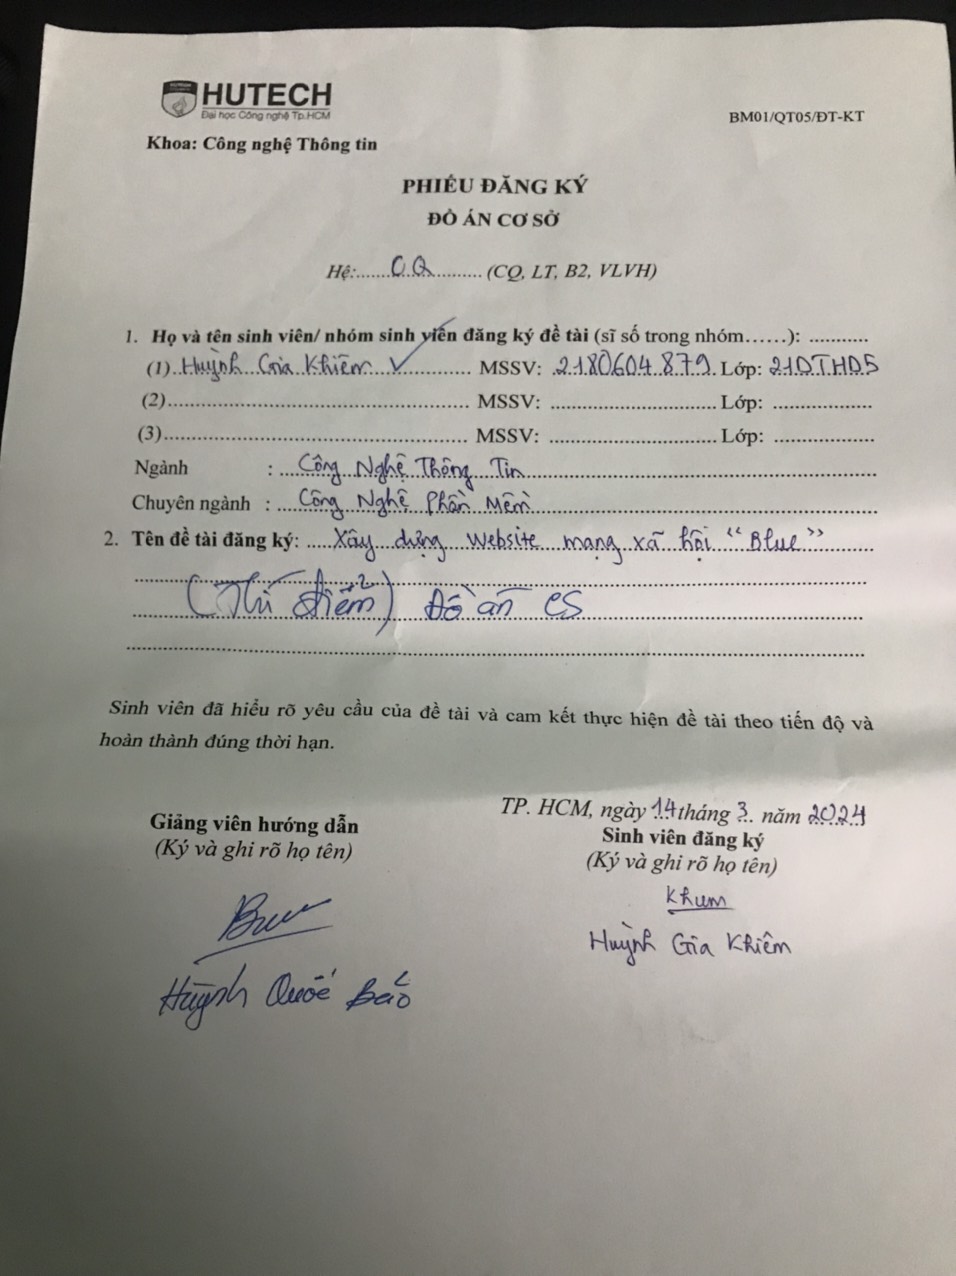 HUTECH
Đại học Công nghệ Tp.HCM
BM01/QT05/ĐT-KT
Khoa: Công nghệ Thông tin
PHIẾU ĐĂNG KÝ
ĐỒ ÁN CƠ SỞ
Hệ:......CQ.......... (CQ, LT, B2, VLVH)
1. Họ và tên sinh viên/ nhóm sinh viên đăng ký đề tài (sĩ số trong nhóm……): ...........
(1)..Huỳnh Gia Khiêm ✓........... MSSV: 2180604879 Lớp: 21DTHD5
(2)..................................................... MSSV: ............................. Lớp: .................
(3)..................................................... MSSV: ............................. Lớp: .................
Ngành : ...Công Nghệ Thông Tin...............................
Chuyên ngành : ....Công Nghệ Phần Mềm...............................
2. Tên đề tài đăng ký: ....Xây dựng Website mạng xã hội “Blue”.........
+2
( điểm) Đồ án cs
Sinh viên đã hiểu rõ yêu cầu của đề tài và cam kết thực hiện đề tài theo tiến độ và
hoàn thành đúng thời hạn.
TP. HCM, ngày 14 tháng 3 năm 2024
Giảng viên hướng dẫn
(Ký và ghi rõ họ tên)
Sinh viên đăng ký
(Ký và ghi rõ họ tên)
Khum
Huỳnh Gia Khiêm
Huỳnh Quốc Bảo